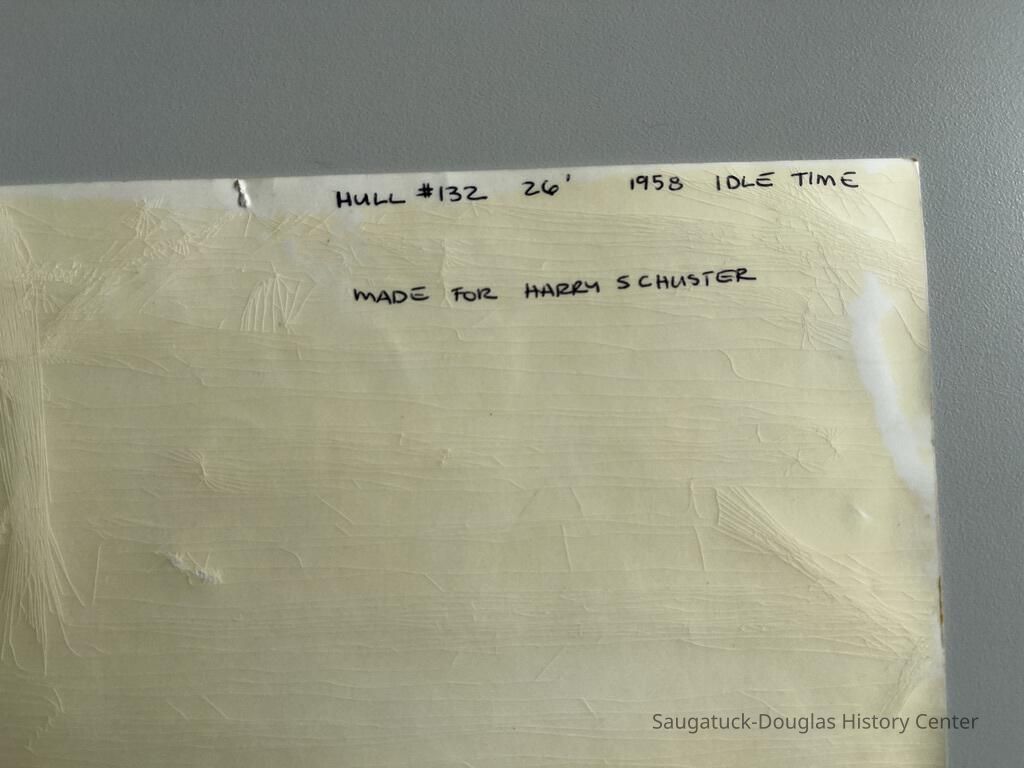 HULL #132 26' 1958 IDLE TIME
MADE FOR HARRY SCHUSTER
Saugatuck-Douglas History Center